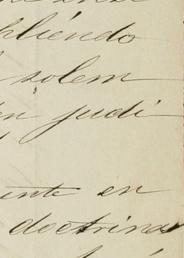 pliendo
solem
judi
ente en
doctrina